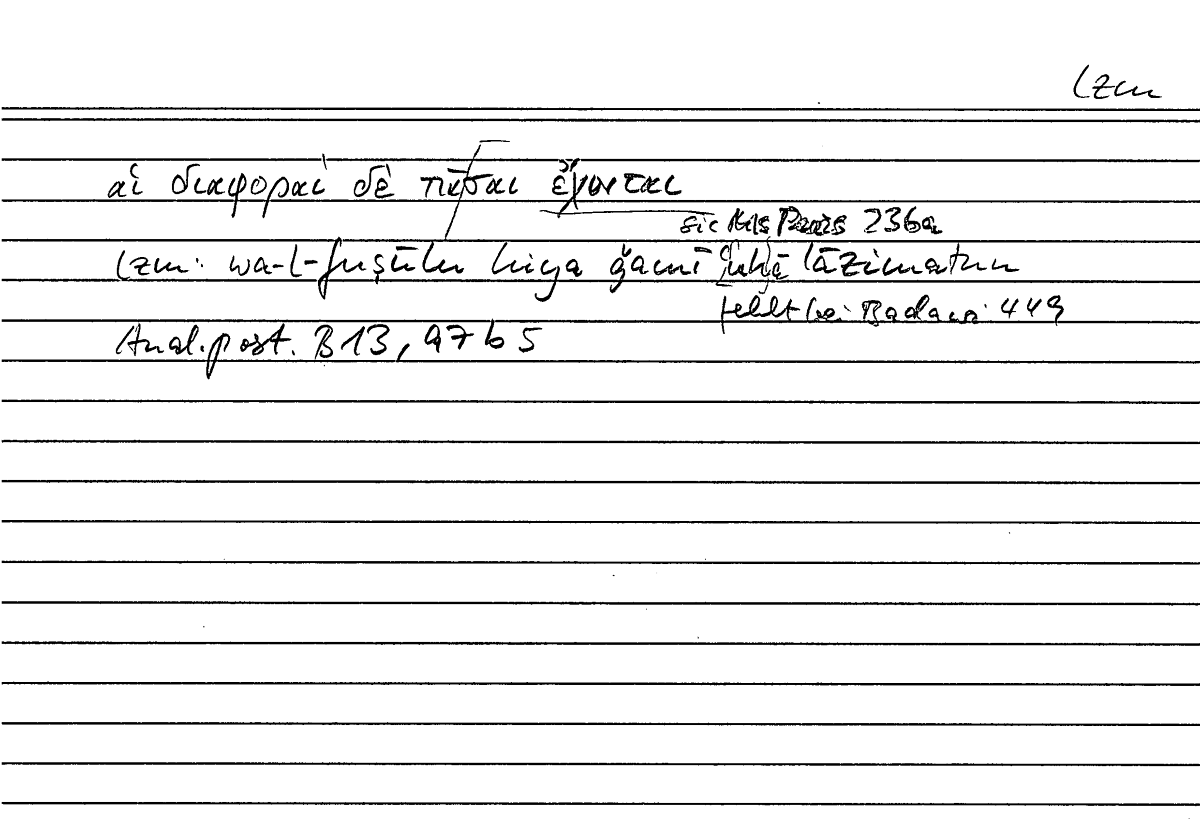 lzm
αἱ διαφοραὶ δὲ πᾶσαι ἔχονται
sic Hs Paris 236a
lzm: wa-l-fuṣūlu hiya ǧamīʿuhā lāzimatun
fehlt bei Badawi 449
Anal.post. B13, 97b5